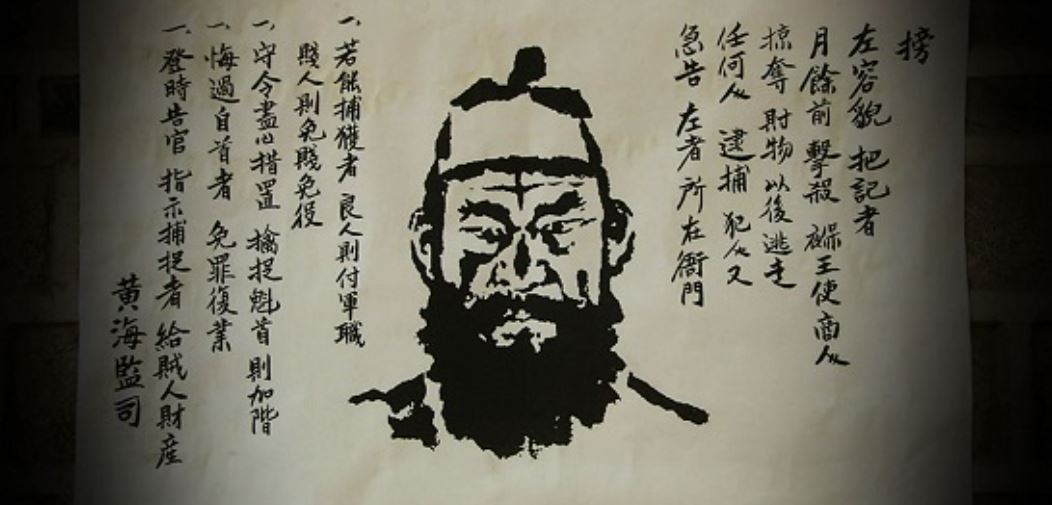 榜
左容貌 把記者
月餘前 擊殺 褓王使商人
掠奪 財物 以後 逃走
任何人 逮捕 犯人又
急告 左者 所在衙門
一. 若能捕獲者 良人則付軍職
賤人則免賤免役
一. 守令盡心措置 擒捉魁首 則加階
一. 悔過自首者 免罪復業
一. 登時告官 指示捕捉者 給賊人財産
黃海監司